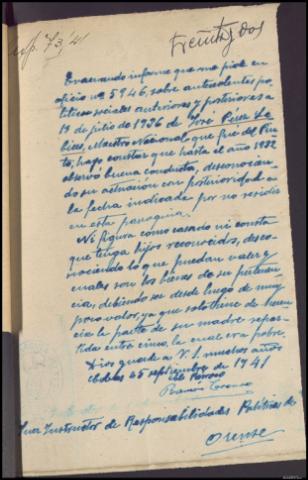 Exp. 73/41
Treinta y dos
Evacuando informe que me pide en
oficio nº 5946, sobre antecedentes po-
líticos sociales anteriores y posteriores a
18 de julio de 1936 de José
Maestro Nacional que fué del
hago constar que hasta el año 1932
observó buena conducta, desconocien-
do su actuación con posterioridad a
la fecha indicada por no residir
en esta parroquia.
Ni figura como casado ni consta
que tenga hijos reconocidos, desco-
nociendo lo que puedan valer y
cuales son los bienes de su pertenen-
cia, debiendo ser desde luego de muy
poco valor, ya que solo tiene de heren-
cia la parte de su madre repar-
tida entre cinco, la cual era pobre.
Dios guarde a V. S. muchos años
25 septiembre de 1941
El Párroco
Ramón
Juez Instructor de Responsabilidades Políticas de
Orense